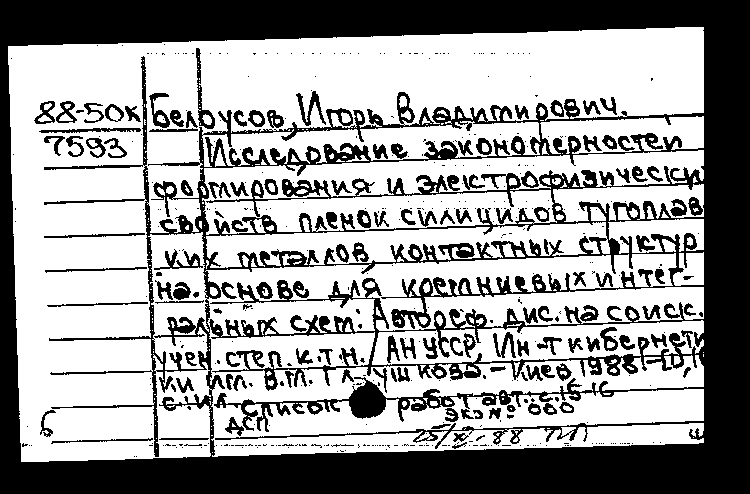 88-50к Белоусов, Игорь Владимирович.
7593 Исследование закономерностей
формирования и электрофизически
свойств пленок силицидов тугоплав
ких металлов, контактных структур
на основе для кремниевых интег-
ральных схем: Автореф. дис. на соиск.
учен. степ. к.т.н. / АН УССР, Ин-т кибернети
ки им. В.М. Глушкова. - Киев, 1988. - [1],
с.: ил. Список работ авт.: с. 15-16
Экз № 000
ДСП
25/XI-88
б